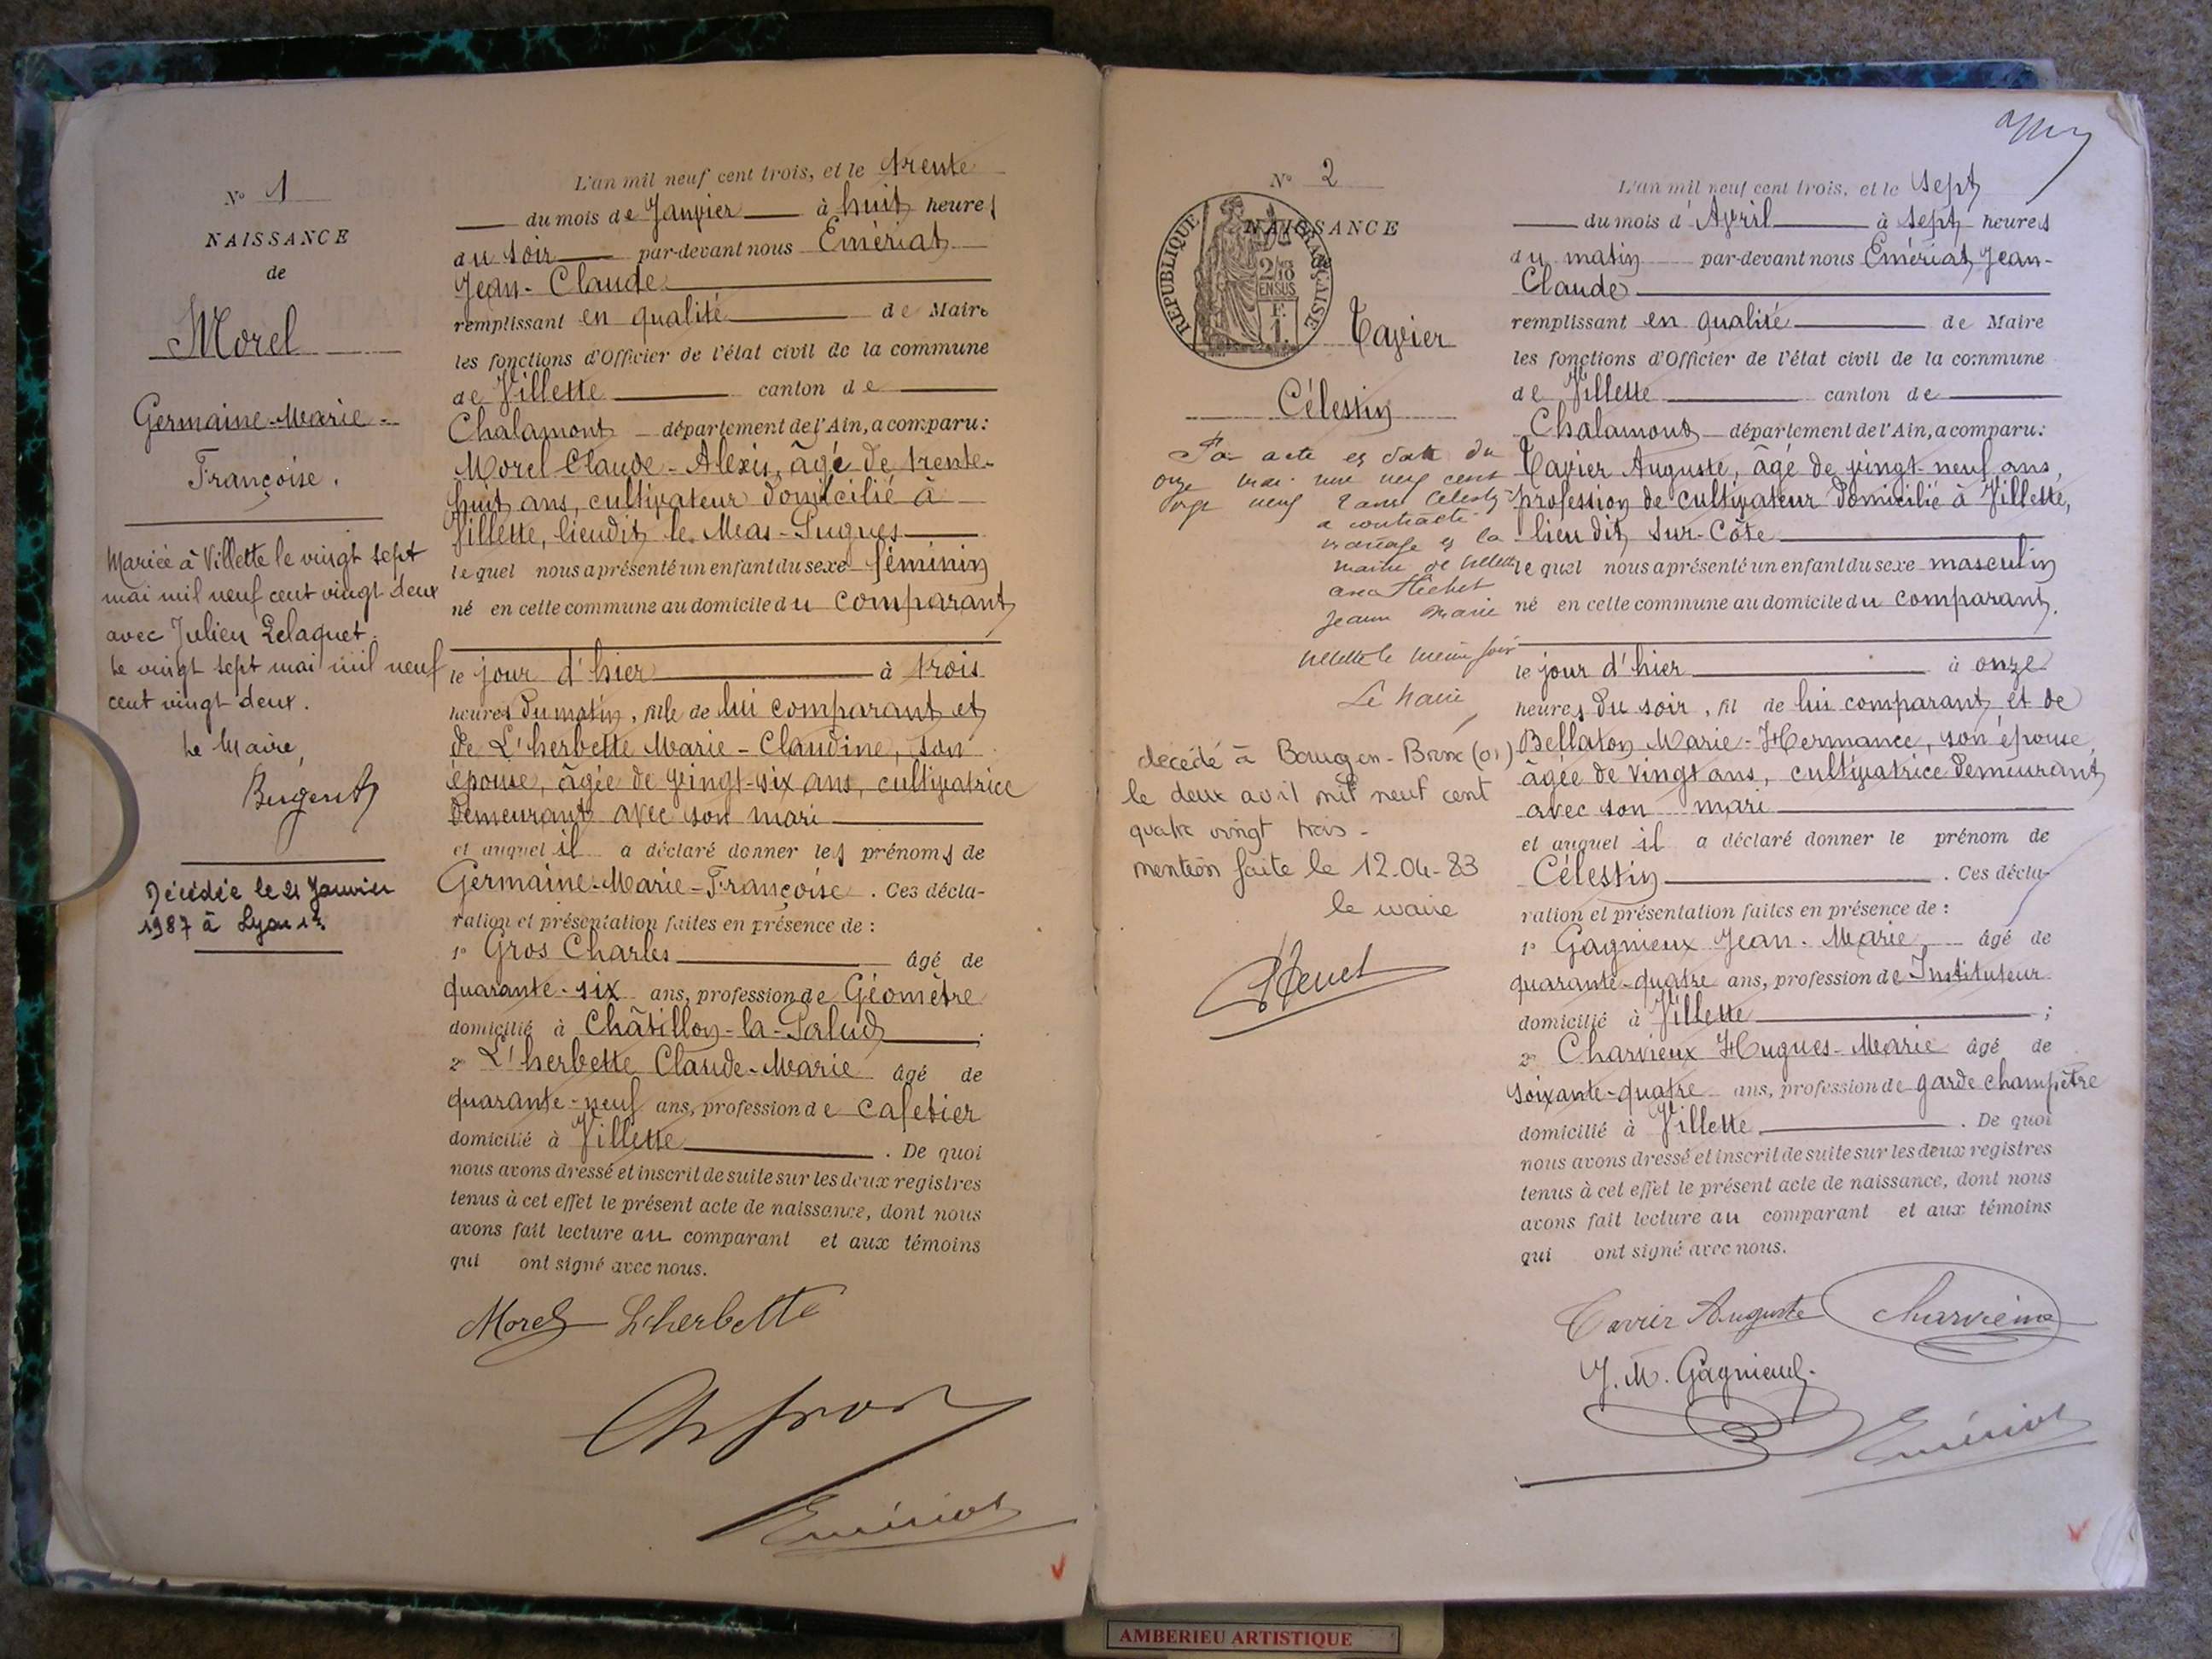 N° 1
NAISSANCE
de
Morel
Germaine-Marie-
Françoise.
Mariée à Villette le vingt sept
mai mil neuf cent vingt deux
avec Julien Pelaquet.
Le vingt sept mai mil neuf
cent vingt deux.
Le Maire,
Décédée le 21 Janvier
1987 à Lyon
L'an mil neuf cent trois, et le trente
du mois de Janvier à huit heures
du soir par-devant nous Emériat
Jean-Claude
remplissant en qualité de Maire
les fonctions d'Officier de l'état civil de la commune
de Villette canton de
Chalamont département de l'Ain, a comparu:
Morel Claude-Alexis, âgé de trente-
huit ans, cultivateur domicilié à
Villette, lieudit le Mas-Pugues
lequel nous a présenté un enfant du sexe féminin
né en cette commune au domicile du comparant
le jour d'hier à trois
heures du matin, fille de lui comparant et
de L'herbette Marie-Claudine, son
épouse, âgée de vingt-six ans, cultivatrice
demeurant avec son mari
et auquel il a déclaré donner les prénoms de
Germaine-Marie-Françoise. Ces décla-
ration et présentation faites en présence de :
1° Gros Charles âgé de
quarante-six ans, profession de Géomètre
domicilié à Châtillon-la-Palud ;
2° L'herbette Claude-Marie âgé de
quarante-neuf ans, profession de cafetier
domicilié à Villette. De quoi
nous avons dressé et inscrit de suite sur les deux registres
tenus à cet effet le présent acte de naissance, dont nous
avons fait lecture au comparant et aux témoins
qui ont signé avec nous.
Morel Lherbette
Emériat
N° 2
NAISSANCE
REPUBLIQUE FRANÇAISE
2/10 EN SUS
F. 1.
Tavier
Célestin
Par acte en date du
onze mai mil neuf cent
vingt neuf Tavier Célestin
a contracté
mariage à la
mairie de Villette
avec
Jeanne Marie
Villette le même jour
Le Maire
décédé à Bourg-en-Bresse (01)
le deux avril mil neuf cent
quatre vingt trois-
mention faite le 12-04-83
le maire
L'an mil neuf cent trois, et le sept
du mois d'Avril à sept heures
du matin par-devant nous Emériat Jean-
Claude
remplissant en qualité de Maire
les fonctions d'Officier de l'état civil de la commune
de Villette canton de
Chalamont département de l'Ain, a comparu:
Tavier Auguste, âgé de vingt-neuf ans,
profession de cultivateur domicilié à Villette,
lieu dit, Sur-Côte
lequel nous a présenté un enfant du sexe masculin
né en cette commune au domicile du comparant.
le jour d'hier à onze
heures du soir, fil de lui comparant, et de
Bellaton Marie-Hermance, son épouse,
âgée de vingt ans, cultivatrice demeurant
avec son mari
et auquel il a déclaré donner le prénom de
Célestin. Ces décla-
ration et présentation faites en présence de :
1° Gagnieux Jean-Marie âgé de
quarante-quatre ans, profession de Instituteur
domicilié à Villette ;
2° Charvieux Hugues-Marie âgé de
soixante-quatre ans, profession de garde champêtre
domicilié à Villette. De quoi
nous avons dressé et inscrit de suite sur les deux registres
tenus à cet effet le présent acte de naissance, dont nous
avons fait lecture au comparant et aux témoins
qui ont signé avec nous.
Tavier Auguste Charvieux
J. M. Gagnieux.
Emériat
AMBERIEU ARTISTIQUE